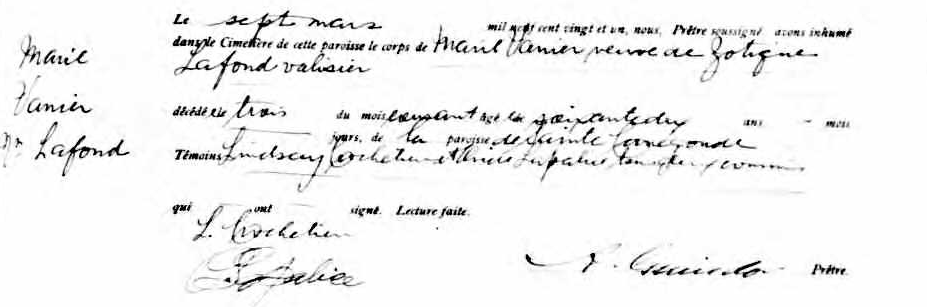 Le sept mars mil neuf cent vingt et un, nous, Prêtre soussigné avons inhumé
Marie
dans le Cimetière de cette paroisse le corps de Marie Vanier veuve de Zotique
Lafond valisier
Vanier
décédé le trois du mois courant âgé de soixante dix ans mois
Lafond
jours, de la paroisse de Sainte Cunégonde
Témoins Lindsay Crochetière et Lapalice tous deux commis
qui ont signé. Lecture faite.
L. Crochetière
Prêtre.